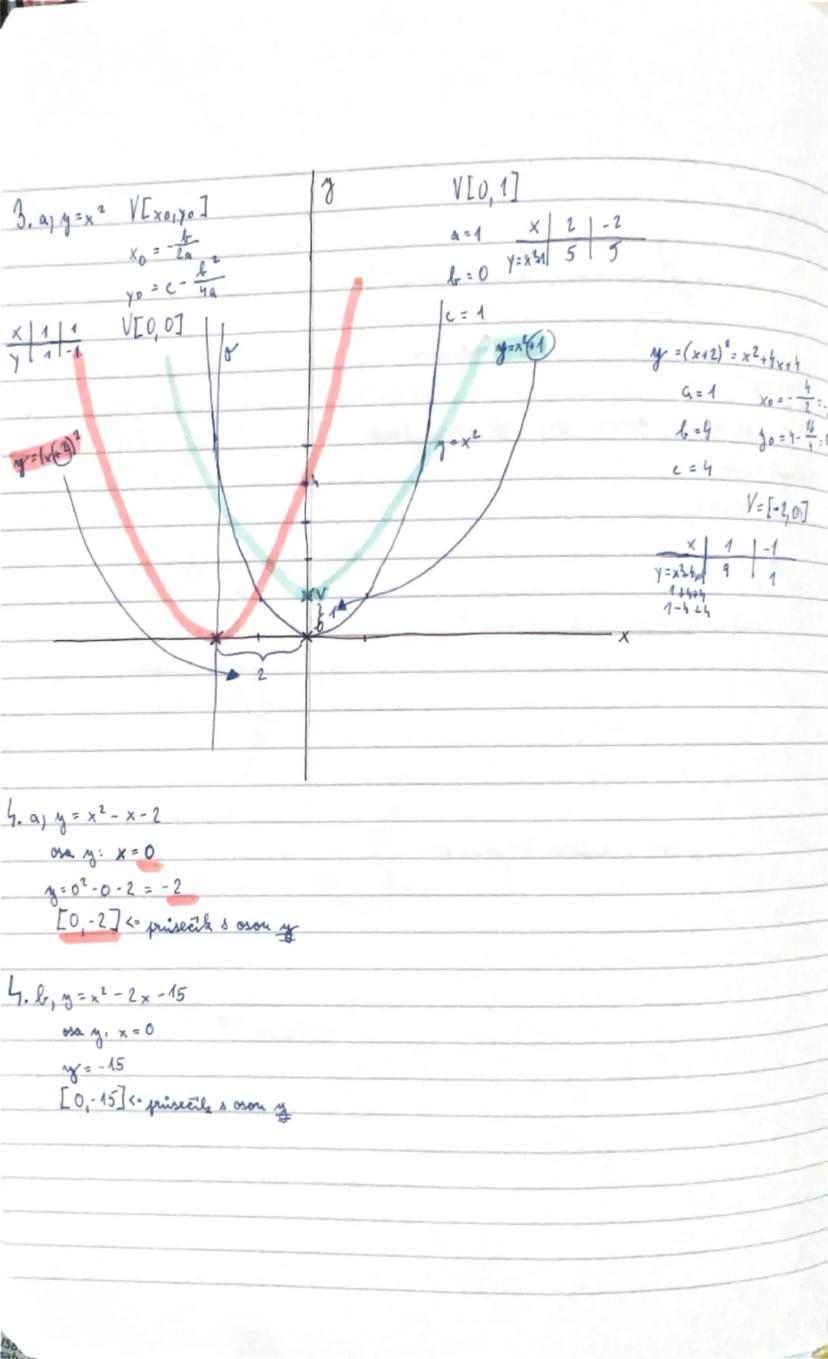 3. a, y = x²
V[x₀, y₀]
x₀ = -b/2a
y₀ = c - b²/4a
x | 1 | 1
y | 1 | -1
V[0,0]
y
V[0,1]
a = 1
b = 0
c = 1
x | 2 | -2
y=x²+1 | 5 | 5
σ
y=x²+1
y=x²
y=(x+2)²
4
V
1
0
2
x
y = (x+2)² = x² + 4x + 4
a = 1
x₀ = -4/2 =
b = 4
y₀ = 4 -
c = 4
V = [-2,0]
x | 1 | -1
y=x²+4x+4 | 9 | 1
1+4+4
1-4+4
4. a, y = x² - x - 2
osa y: x = 0
y = 0² - 0 - 2 = -2
[0,-2] <= průsečík s osou y
4. b, y = x² - 2x - 15
osa y: x = 0
y = -15
[0,-15] <= průsečík s osou y